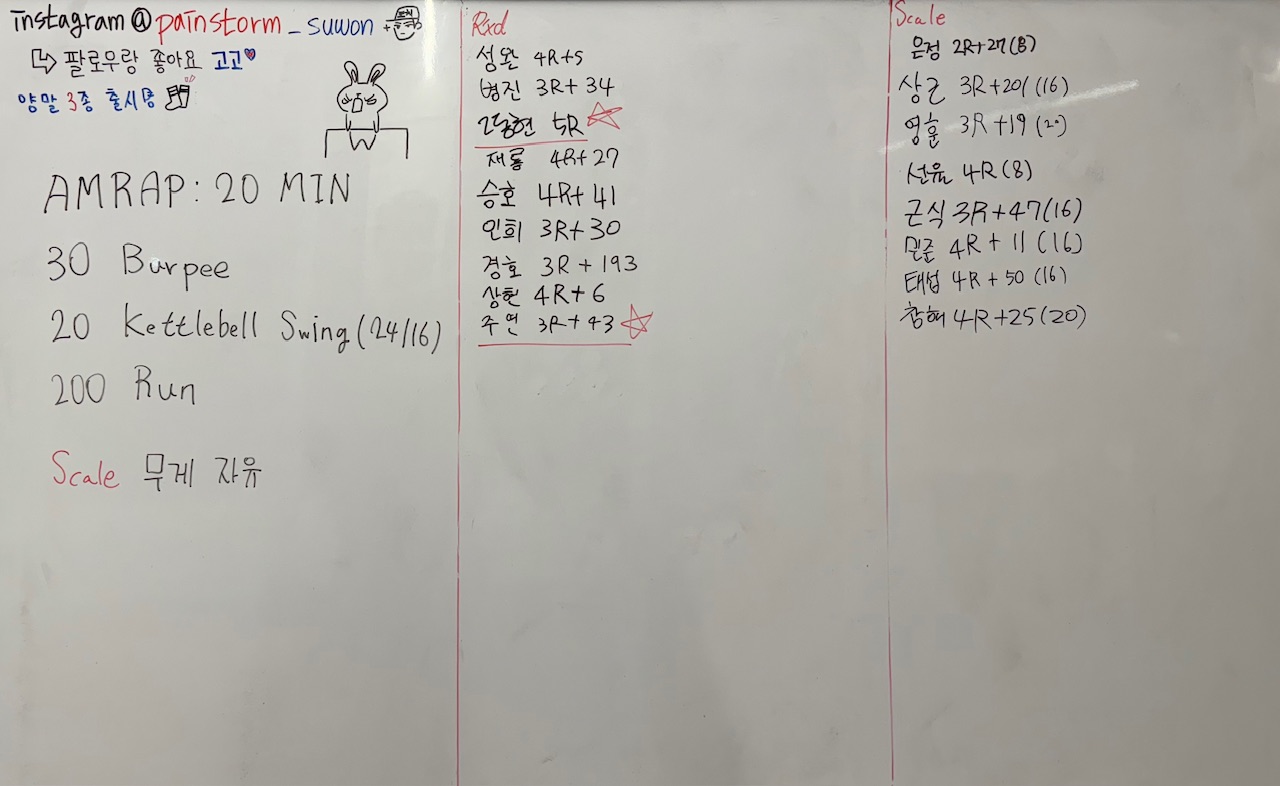 instagram @painstorm_suwon
팔로우랑 좋아요 고고
양말 3종 출시중
AMRAP: 20 MIN
30 Burpee
20 Kettlebell Swing (24/16)
200 Run
Scale 무게 자유
Rxd
성완 4R+5
병진 3R+34
5R
재룡 4R+27
승호 4R+41
인희 3R+30
경호 3R+193
상헌 4R+6
주연 3R+43
Scale
은정 2R+27(8)
상근 3R+201(16)
영훈 3R+19(20)
선율 4R(8)
근식 3R+47(16)
민준 4R+11(16)
태섭 4R+50(16)
참해 4R+25(20)